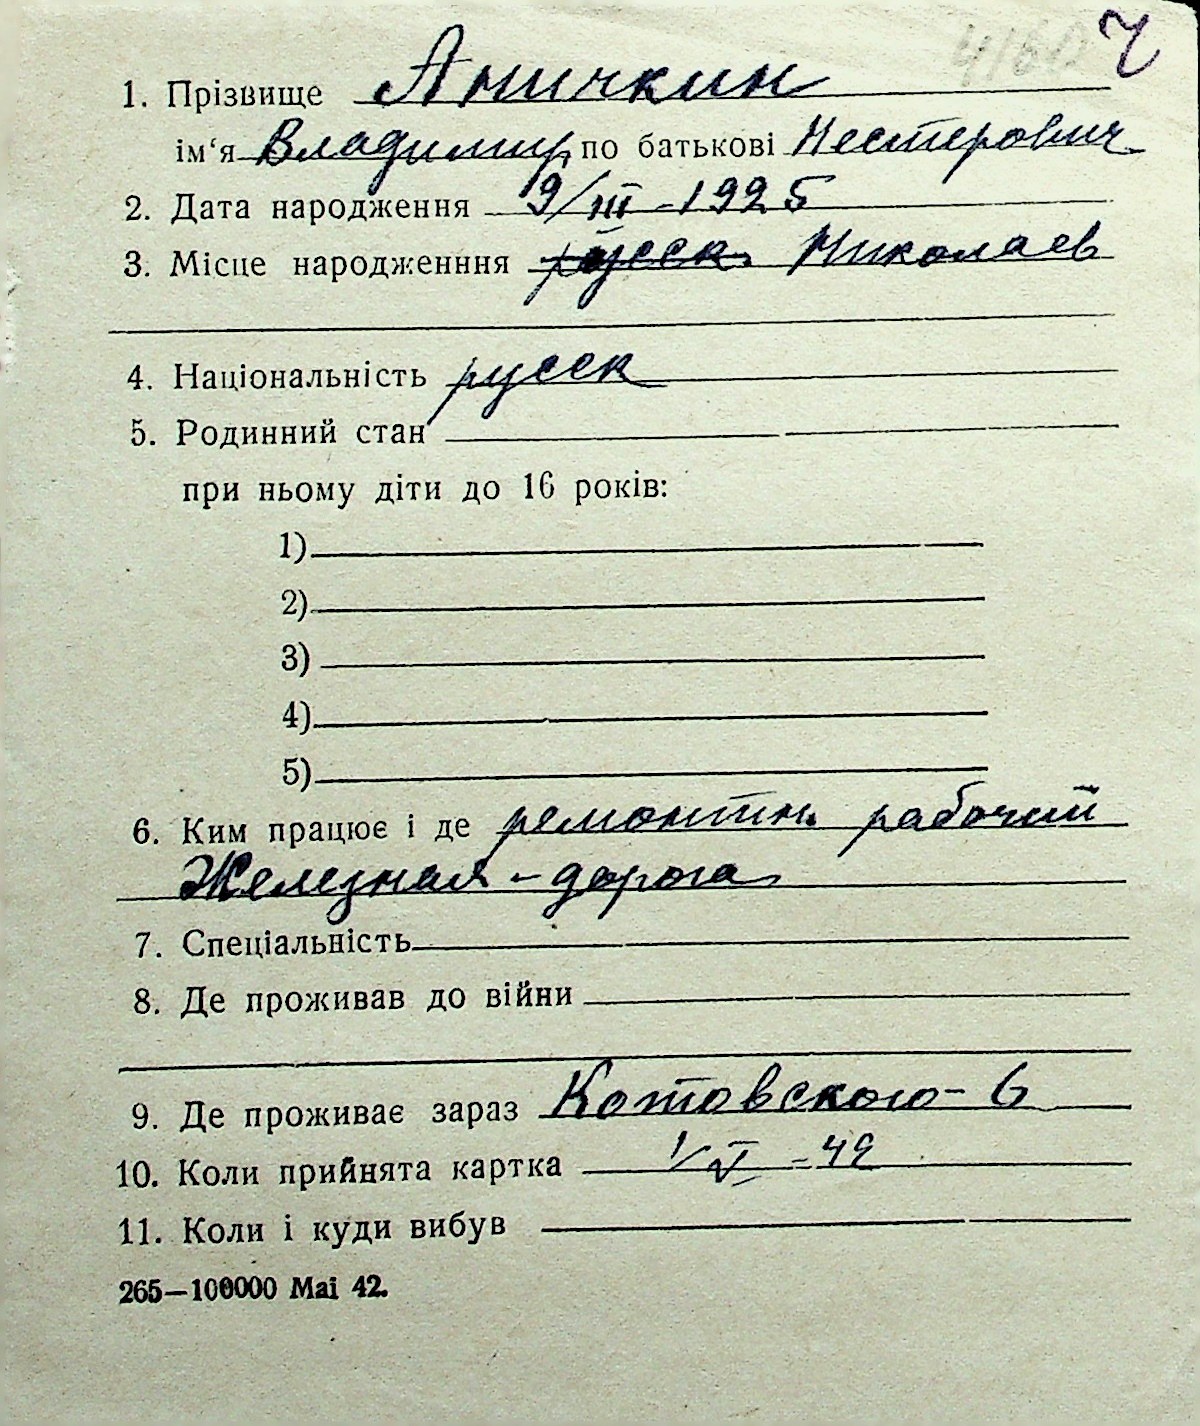 4160 Ч
1. Прізвище Аничкин
ім‘я Владимир по батькові Нестерович
2. Дата народження 9/III-1925
3. Місце народженння русск. Николаев
4. Національність русск
5. Родинний стан
при ньому діти до 16 років:
1)
2)
3)
4)
5)
6. Ким працює і де ремонтн. рабочий
Железная-дорога
7. Спеціальність
8. Де проживав до війни
9. Де проживає зараз Котовского-6
10. Коли прийнята картка 1/V-42
11. Коли і куди вибув
265—100000 Mai 42.